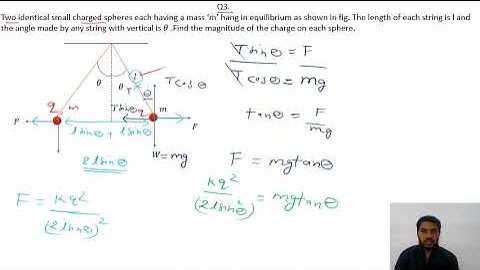 Q3.
Two identical small charged spheres each having a mass 'm' hang in equilibrium as shown in fig. The length of each string is l and
the angle made by any string with vertical is θ .Find the magnitude of the charge on each sphere.
Tsinθ = F
Tcosθ = mg
l
θ θ T θ Tcosθ
tanθ = F/mg
q m Tsinθ q m
F F
lsinθ + lsinθ
W=mg
2lsinθ
F = mgtanθ
F = kq²/(2lsinθ)²
kq²/(2lsinθ)² = mgtanθ